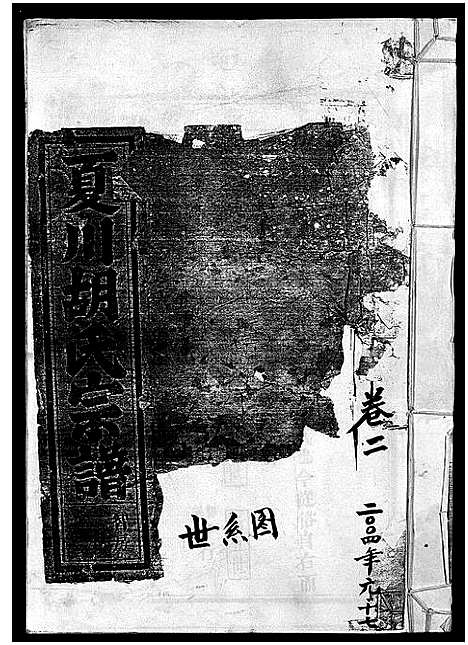 夏川胡氏宗譜
卷二
世系图
二〇〇四年元十七